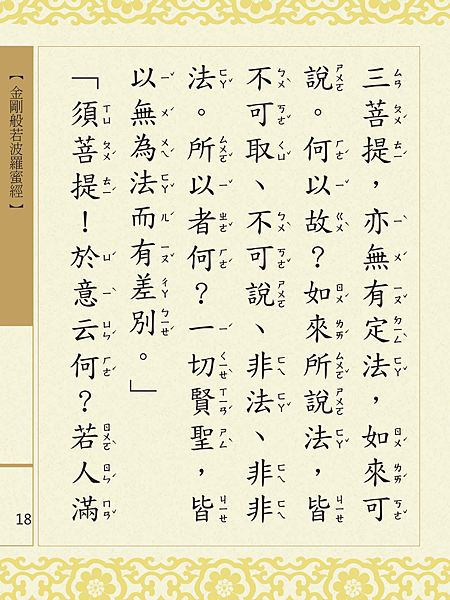 三菩提，亦無有定法，如來可
說。何以故？如來所說法，皆
不可取、不可說、非法、非非
法。所以者何？一切賢聖，皆
以無為法而有差別。」
「須菩提！於意云何？若人滿
【金剛般若波羅蜜經】
18